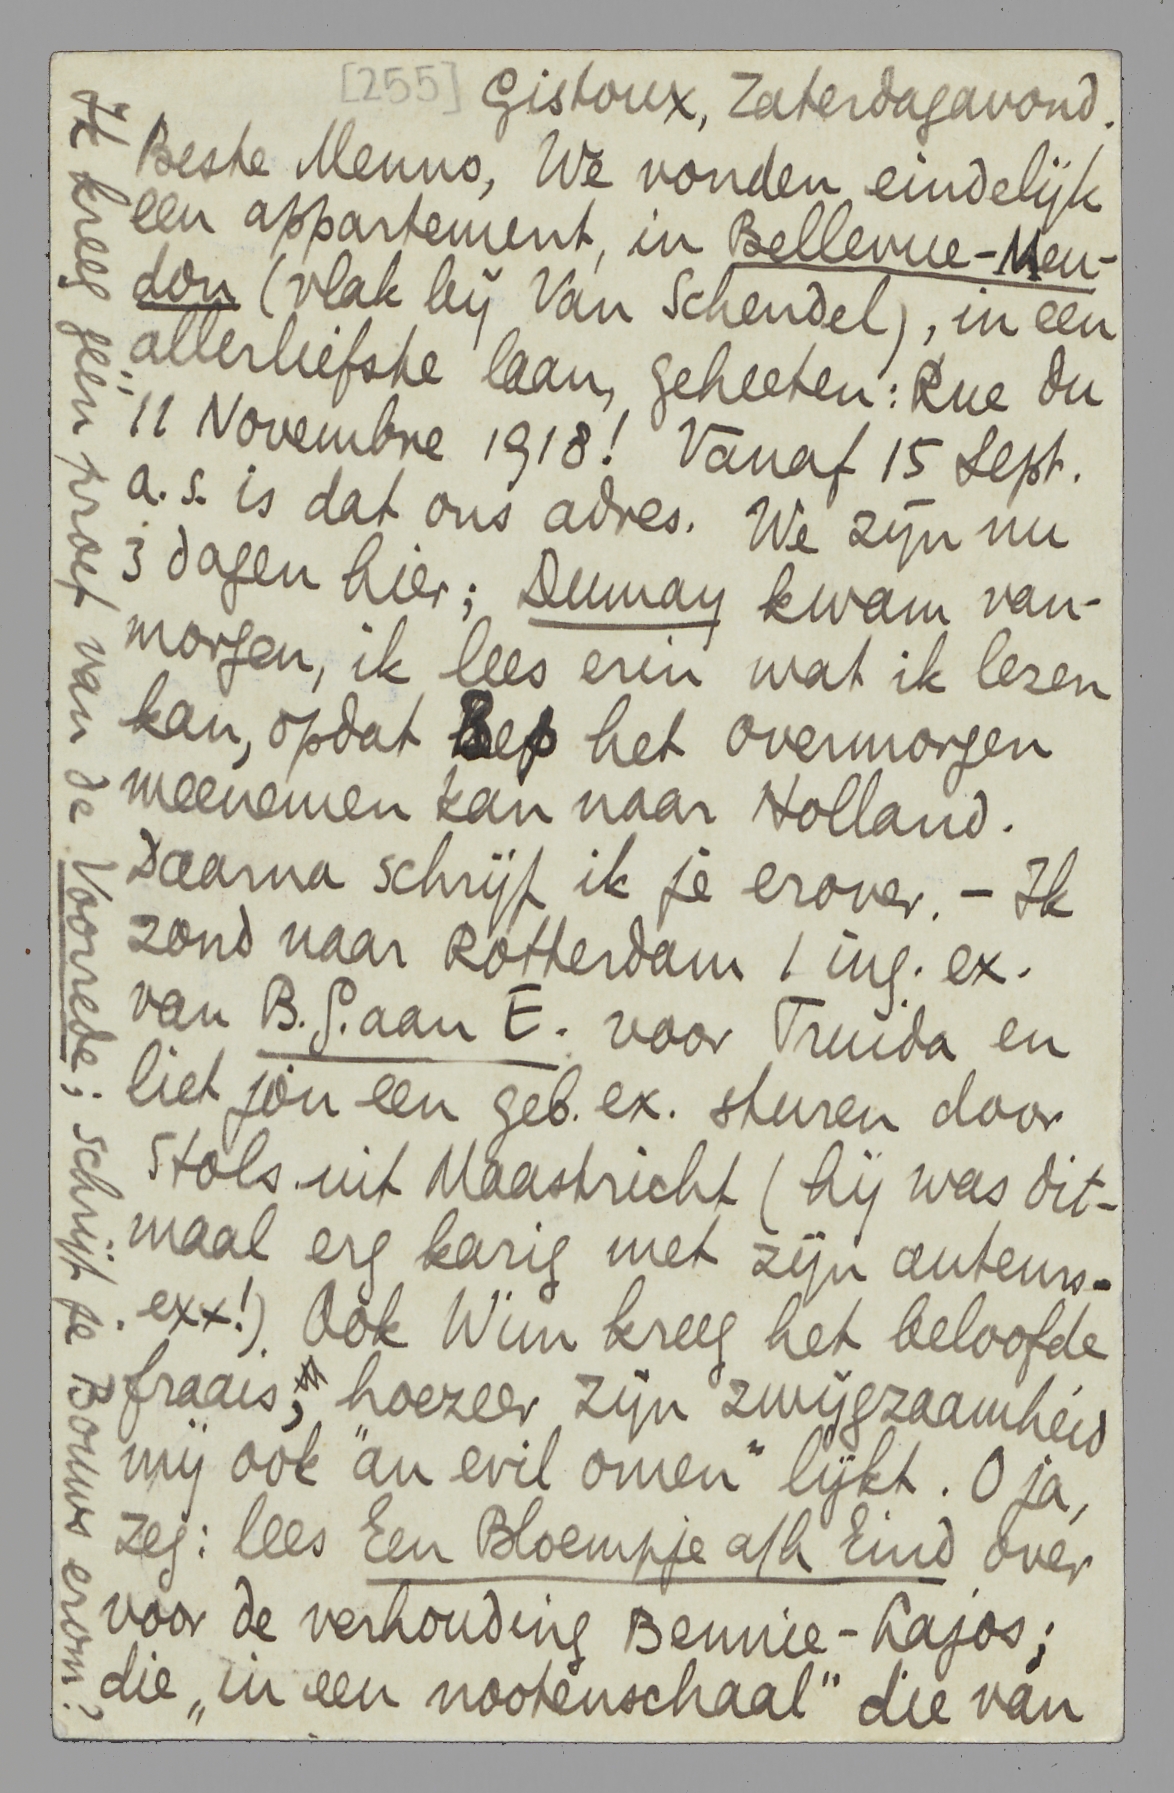 [255] Gistoux, Zaterdagavond.
Beste Menno, We vonden eindelijk
een appartement, in Bellevue-Meu-
don (vlak bij Van Schendel), in een
allerliefste laan, geheeten: Rue du
11 Novembre 1918! Vanaf 15 Sept.
a.s. is dat ons adres. We zijn nu
3 dagen hier; Dumay kwam van-
morgen, ik lees erin wat ik lezen
kan, opdat Bep het overmorgen
meenemen kan naar Holland.
Daarna schrijf ik je erover. – Ik
zond naar Rotterdam 1 ing. ex.
van B.G. aan E. voor Truida en
liet jòu een geb. ex. sturen door
Stols uit Maastricht (hij was dit-
maal erg karig met zijn auteurs-
exx!). Ook Wim kreeg het beloofde
fraais; hoezeer zijn zwijgzaamheid
mij ook "an evil omen" lijkt. O ja,
zeg: lees Een Bloempje a/h Eind over
voor de verhouding Bennie-Lajos;
die „in een nootenschaal" die van
Ik kreeg géén proef van de Voorrede; schrijf je Bouws erom?